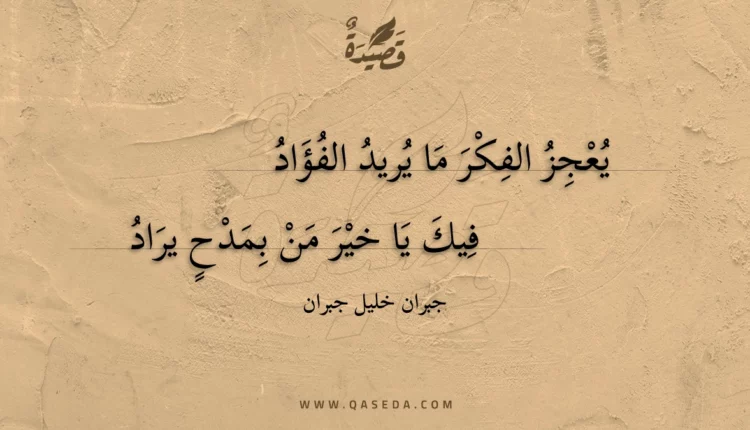 قَصِيدَةٌ
يُعْجِزُ الفِكْرَ مَا يُرِيدُ الفُؤَادُ
فِيكَ يَا خيْرَ مَنْ بِمَدْحٍ يرَادُ
جبران خليل جبران
WWW.QASEDA.COM